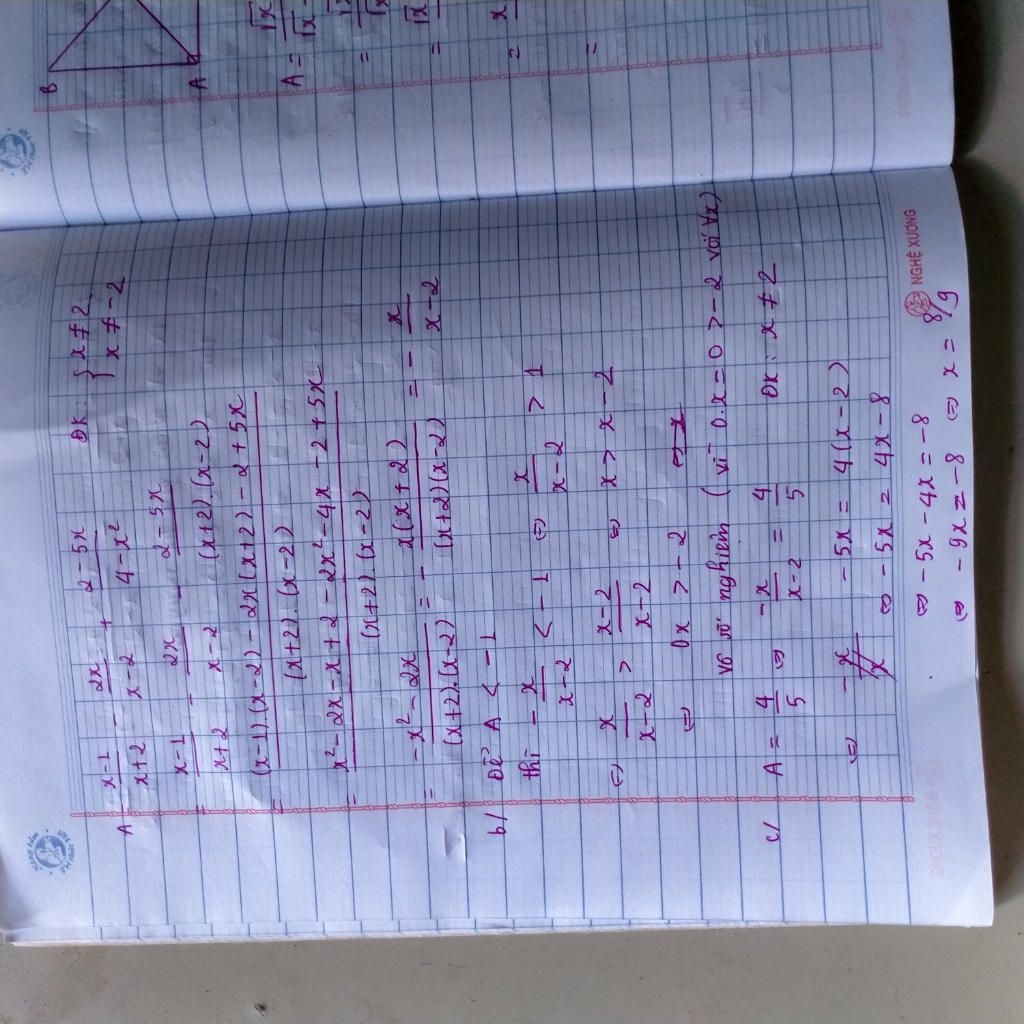 A = x-1/x+2 - 2x/x-2 + 2-5x/4-x² ĐK: { x ≠ 2
x ≠ -2
= x-1/x+2 - 2x/x-2 - 2-5x/(x+2).(x-2)
= (x-1).(x-2) - 2x(x+2) - 2+5x/(x+2).(x-2)
= x²-2x-x+2-2x²-4x-2+5x/(x+2).(x-2)
= -x²-2x/(x+2).(x-2) = - x(x+2)/(x+2)(x-2) = - x/x-2
b/ Để A < -1
thì - x/x-2 < -1 ⇔ x/x-2 > 1
⇔ x/x-2 > x-2/x-2 ⇔ x > x-2
⇔ 0x > -2 ⇔ x
vô số nghiệm (vì 0.x = 0 > -2 với ∀x)
c/ A = 4/5 ⇔ -x/x-2 = 4/5 ĐK: x ≠ 2
⇔ -5x = 4(x-2)
⇔ -5x = 4x-8
⇔ -5x-4x = -8
⇔ -9x = -8 ⇔ x = 8/9
NGHỆ XƯƠNG
B
A
A =
=
=
=
=